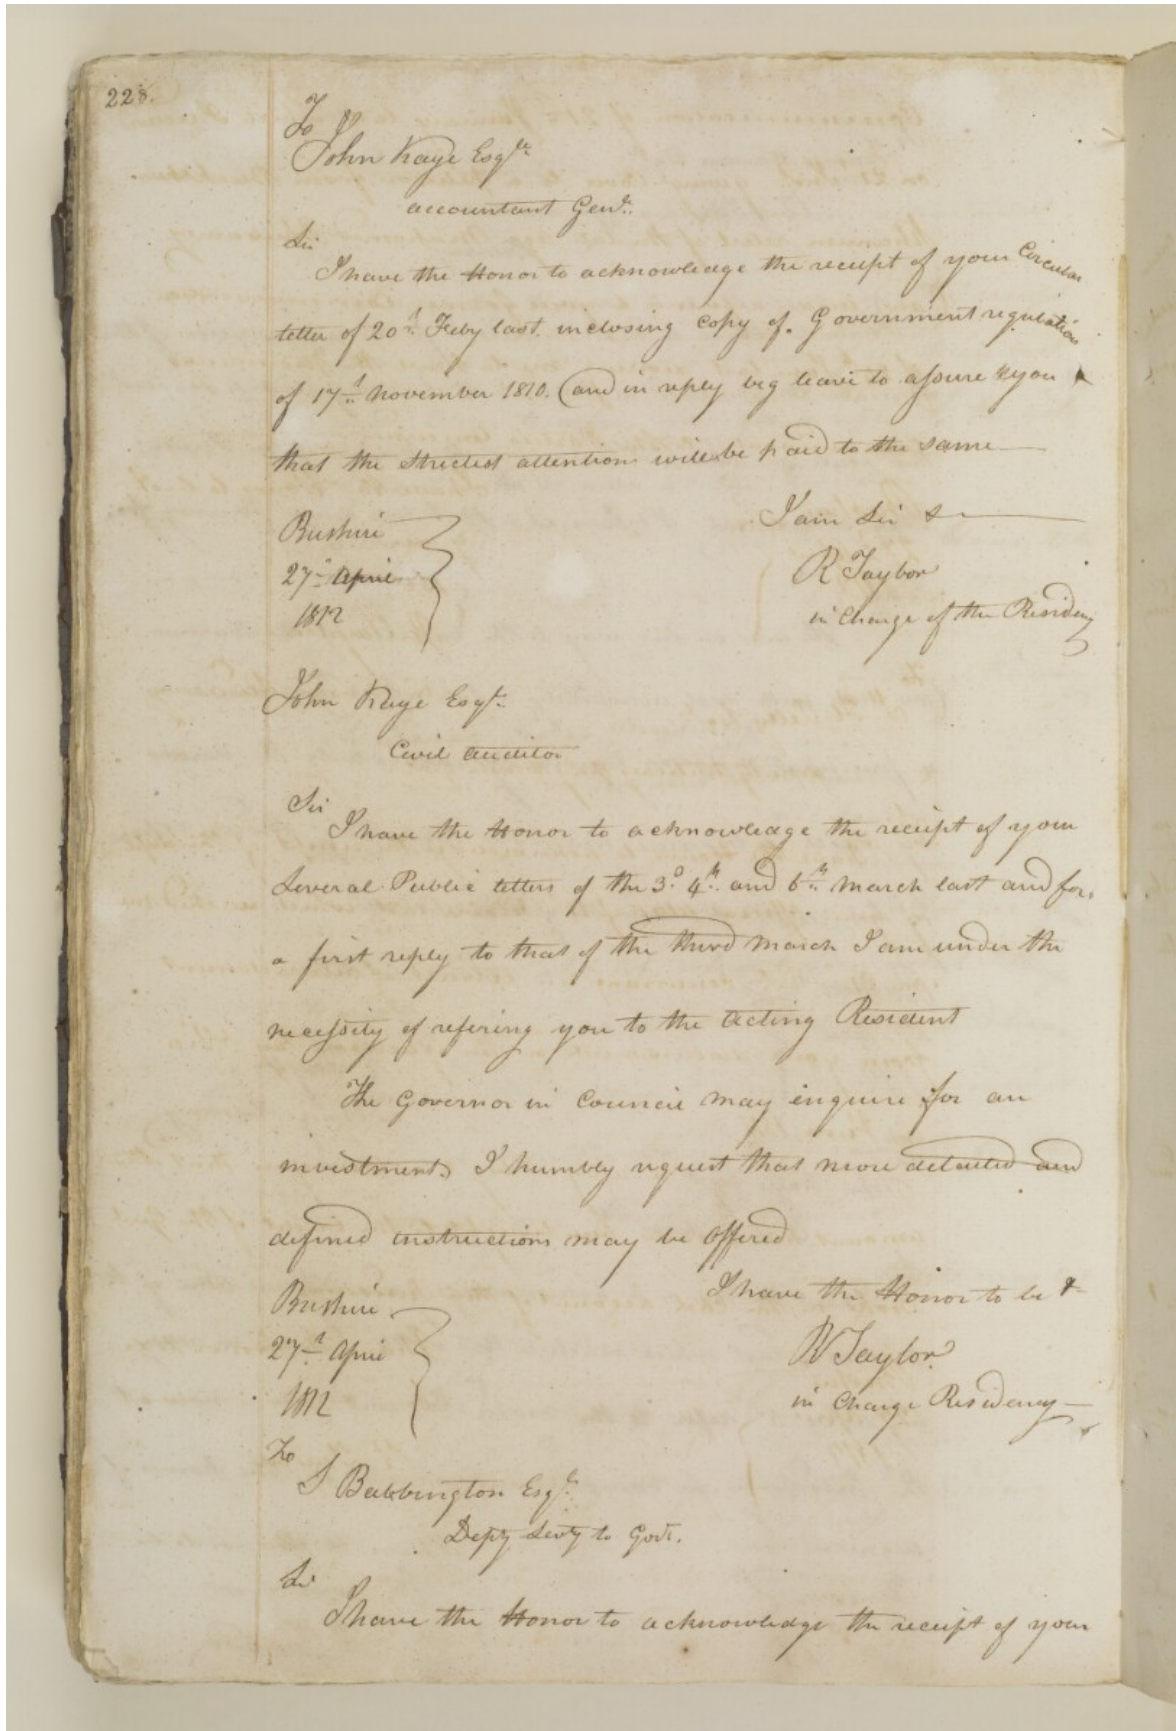 228.
To
John Kaye Esqre
accountant Genl.
Sir
I have the Honor to acknowledge the receipt of your Circular
letter of 20th Feby last. inclosing Copy of Government regulation
of 17th November 1810. and in reply beg leave to assure you
that the strictest attention will be paid to the same
I am Sir &
Bushire
27th April
1812
R Taylor
in Charge of the Residency
John Kaye Esqr
Civil Auditor
Sir
I have the Honor to acknowledge the receipt of your
Several Public letters of the 3d 4th and 6th March last and for
a first reply to that of the third March I am under the
necessity of refering you to the Acting Resident
The Governor in Council may enquire for an
investment. I humbly request that more detailed and
defined instructions may be offered
I have the Honor to be &
Bushire
27th April
1812
R Taylor
in Charge Residency
To
S Babbington Esqr
Depy Secty to Govt.
Sir
I have the Honor to acknowledge the receipt of your